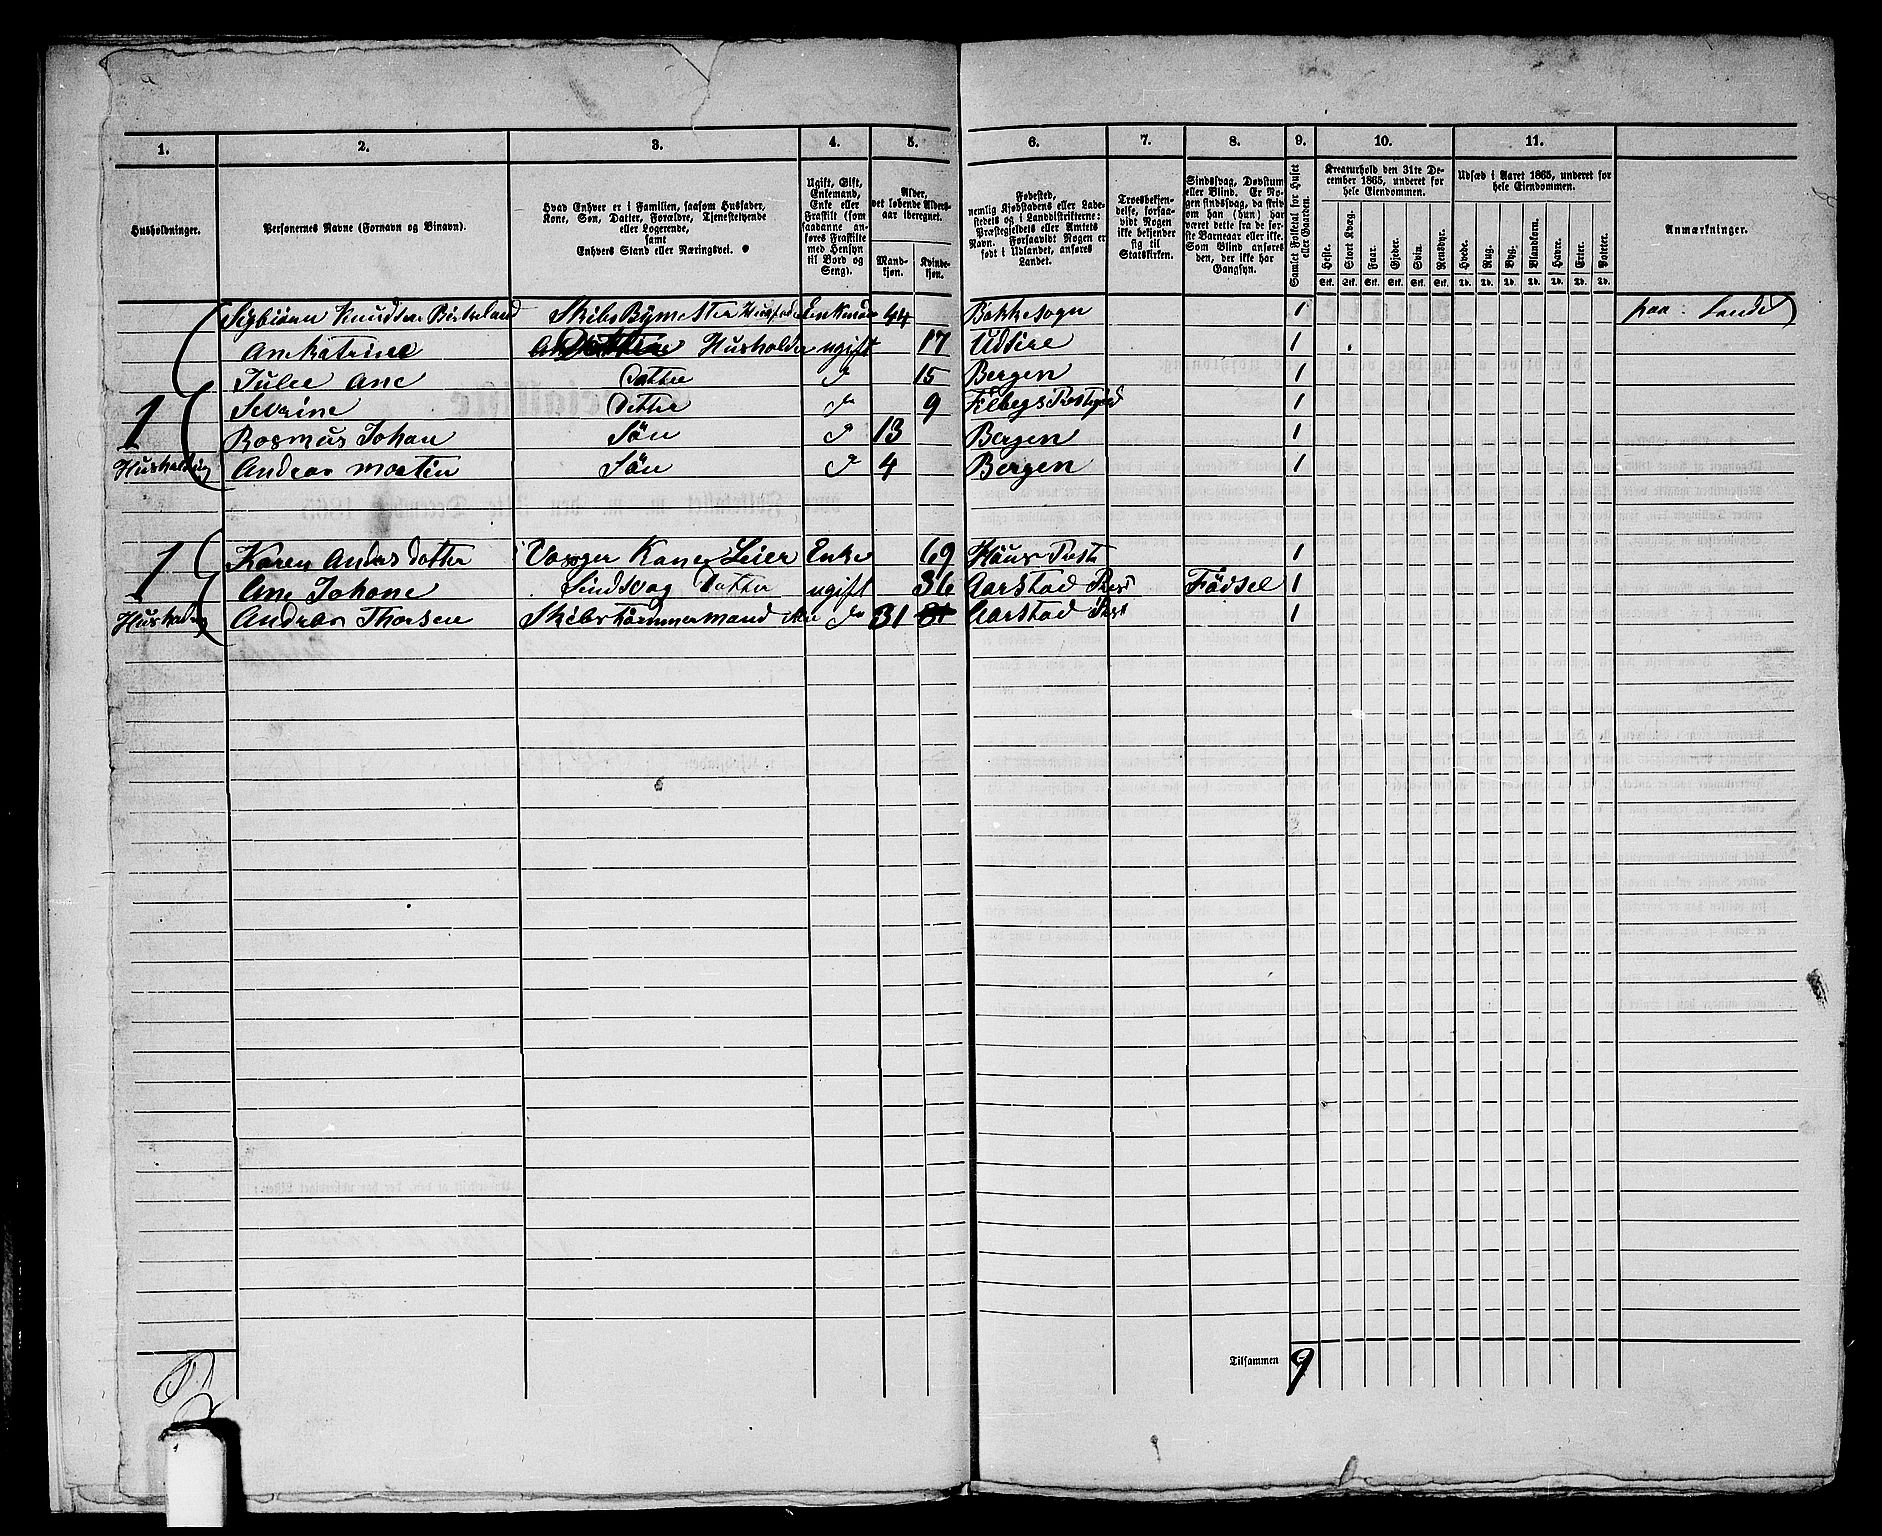 1. 2. 3. 4. 5. 6. 7. 8. 9. 10. 11.
Husholdninger.
Personernes Navne (Fornavn og Binavn).
Hvad Enhver er i Familien, saasom Husfader, Kone, Søn, Datter, Forældre, Tjenestetyende eller Logerende, samt Enhvers Stand eller Næringsvei.
Ugift, Gift, Enkemand, Enke eller Fraskilt (som saadanne anføres Fraskilte med Hensyn til Bord og Seng).
Alder, det løbende Aldersaar iberegnet.
Mandkjøn. Kvindekjøn.
Fødested, nemlig Kjøbstadens eller Ladestedets og i Landdistrikterne: Præstegjeldets eller Amtets Navn. Forsaavidt Nogen er født i Udlandet, anføres Landet.
Troesbekjendelse, forsaavidt Nogen ikke bekjender sig til Statskirken.
Sindssvag, Døvstum eller Blind. Er Nogen sindssvag, da skrives om han (hun) har været dette fra de første Barneaar eller ikke. Som Blind anføres den, der ikke har Gangsyn.
Samlet Folketal for Huset eller Gaarden.
Kreaturhold den 31te December 1865, underet for hele Eiendommen.
Heste. Stort Kvæg. Faar. Gjeder. Svin. Rensdyr.
Stk. Stk. Stk. Stk. Stk. Stk.
Udsæd i Aaret 1865, underet for hele Eiendommen.
Hvede. Rug. Byg. Blandkorn. Havre. Erter. Poteter.
Td. Td. Td. Td. Td. Td. Td.
Anmærkninger.
Sigbiørn Knudsen Birkeland Skibs Bÿmester Husfader Enkemand 44 Bakkesogn 1 paa: Landet
Ane Katrine Husholder ugift 17 Udsire 1
Julee Ane Datter do 15 Bergen 1
1 Sevrine Detter do 9 1
Rasmus Johan Søn do 13 Bergen 1
Husholdning Andras Martin Søn do 4 Bergen 1
1 Karen Anders Datter Enke 69 Haus Prest 1
Ane Johane Sindsvag Datter ugift 36 Aarstad Prest Fødsel 1
Husholdning Andreas Thorsen Skibstømmermand do 31 31 Aarstad Prest 1
Tilsammen 9